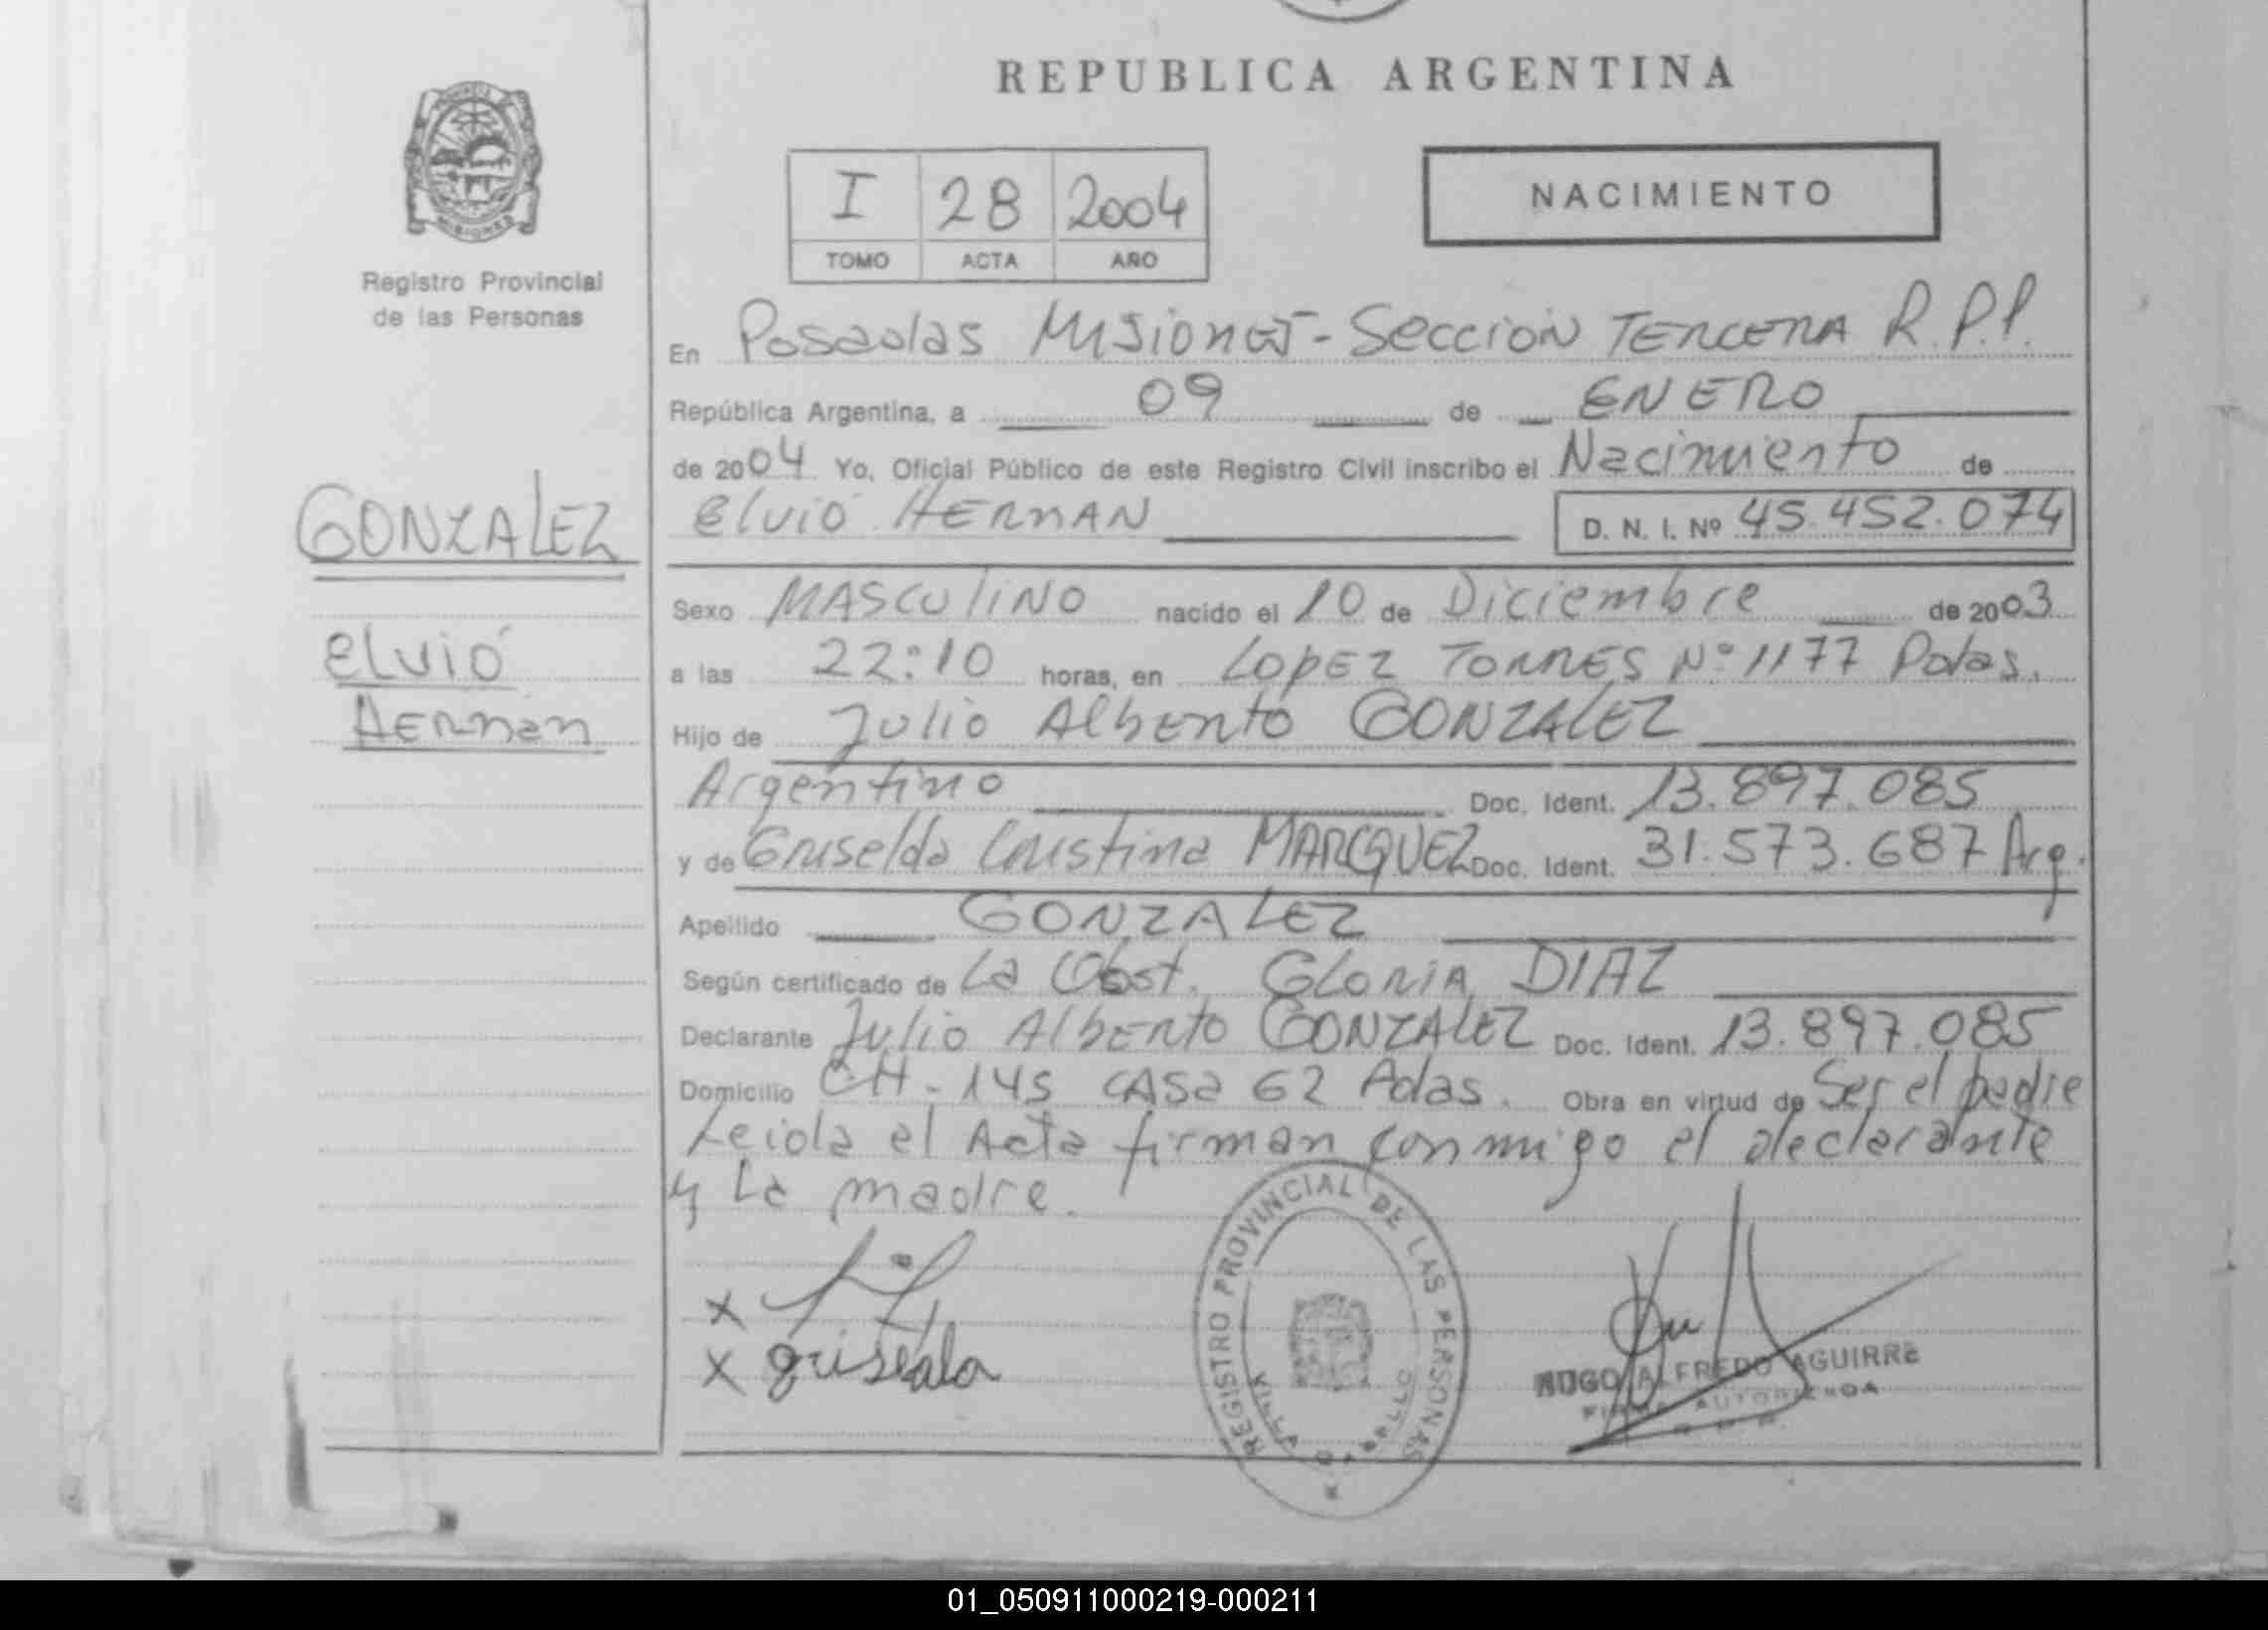 REPUBLICA ARGENTINA
PROVINCIA DE MISIONES
Registro Provincial
de las Personas
I 28 2004
TOMO ACTA AÑO
NACIMIENTO
En Posadas Misiones - Sección TERCERA R.P.P.
República Argentina, a 09 de ENERO
de 2004 Yo, Oficial Público de este Registro Civil inscribo el Nacimiento de
Elvio HERNAN D. N. I. Nº 45.452.074
GONZALEZ
Elvio
Hernan
Sexo MASCULINO nacido el 10 de Diciembre de 2003
a las 22:10 horas, en LOPEZ TORRES Nº 1177 Pdas.
Hijo de Julio Alberto GONZALEZ
Argentino Doc. Ident. 13.897.085
y de Griselda Cristina MARQUEZ Doc. Ident. 31.573.687 Arg.
Apellido GONZALEZ
Según certificado de La Obst. GLORIA DIAZ
Declarante Julio Alberto GONZALEZ Doc. Ident. 13.897.085
Domicilio CH - 145 CASA 62 Pdas. Obra en virtud de Ser el padre
Leida el Acta firman conmigo el declarante
y La madre.
x
x griselda
REGISTRO PROVINCIAL DE LAS PERSONAS
VILLA
HUGO ALFREDO AGUIRRE
FIRMA AUTORIZADA
01_050911000219-000211